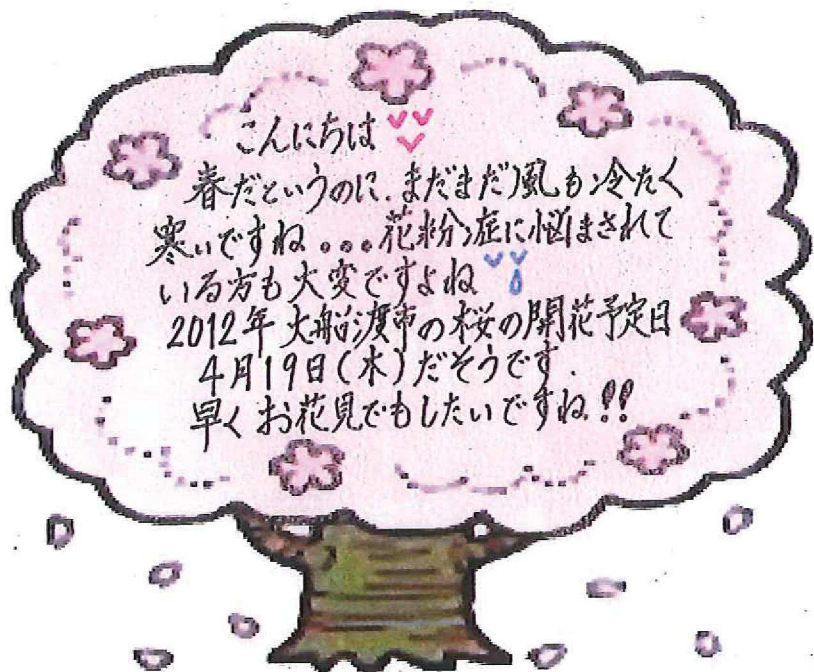 こんにちは
春だというのに、まだまだ風も冷たく
寒いですね。。。花粉症に悩まされて
いる方も大変ですよね
2012年 大船渡市の桜の開花予定日
4月19日(木)だそうです.
早くお花見でもしたいですね!!